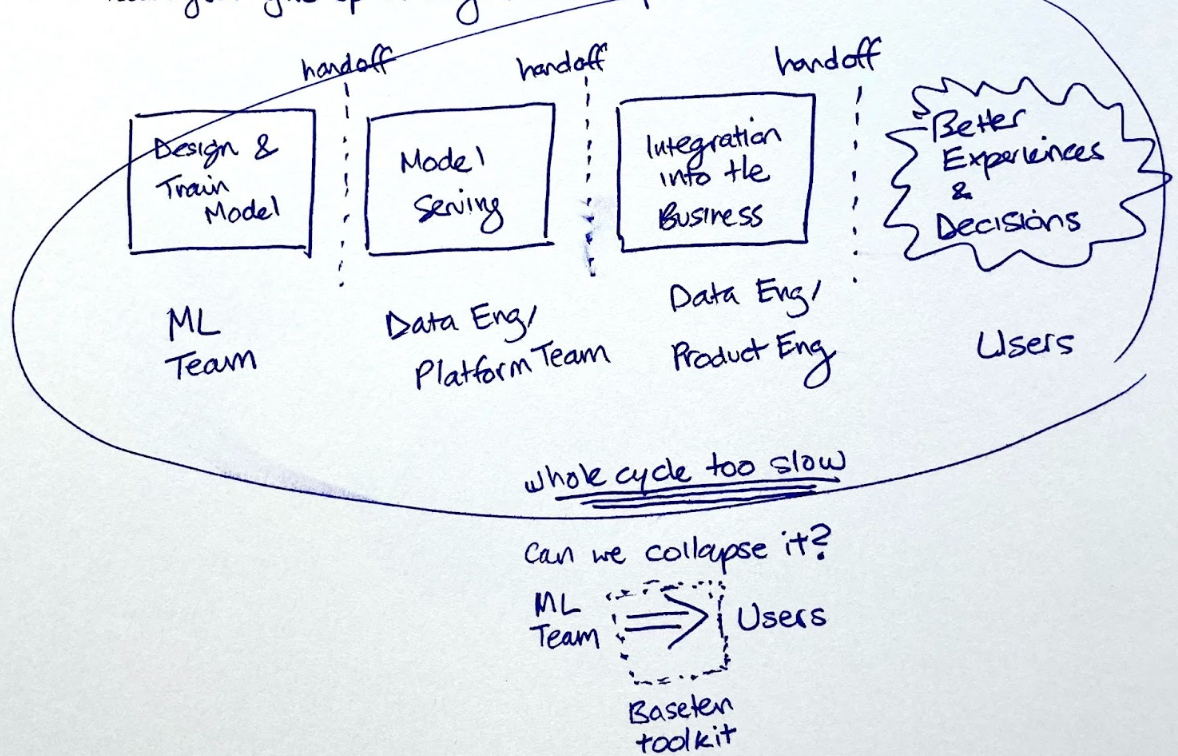 handoff
handoff
handoff
Design &
Train
Model
Model
Serving
Integration
into the
Business
Better
Experiences
&
Decisions
ML
Team
Data Eng/
Platform Team
Data Eng/
Product Eng
Users
whole cycle too slow
Can we collapse it?
ML
Team
Users
Baseten
toolkit